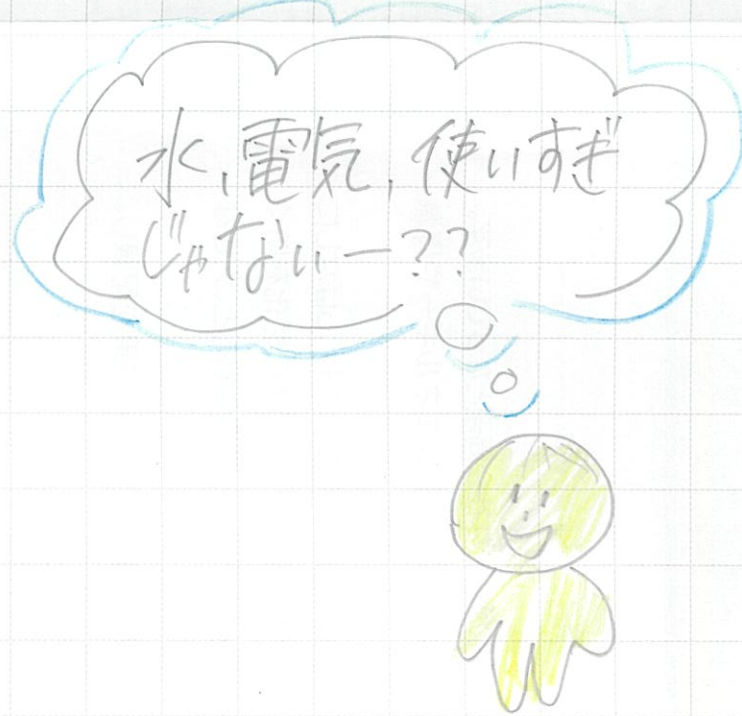 水、電気、使いすぎ
じゃないー??